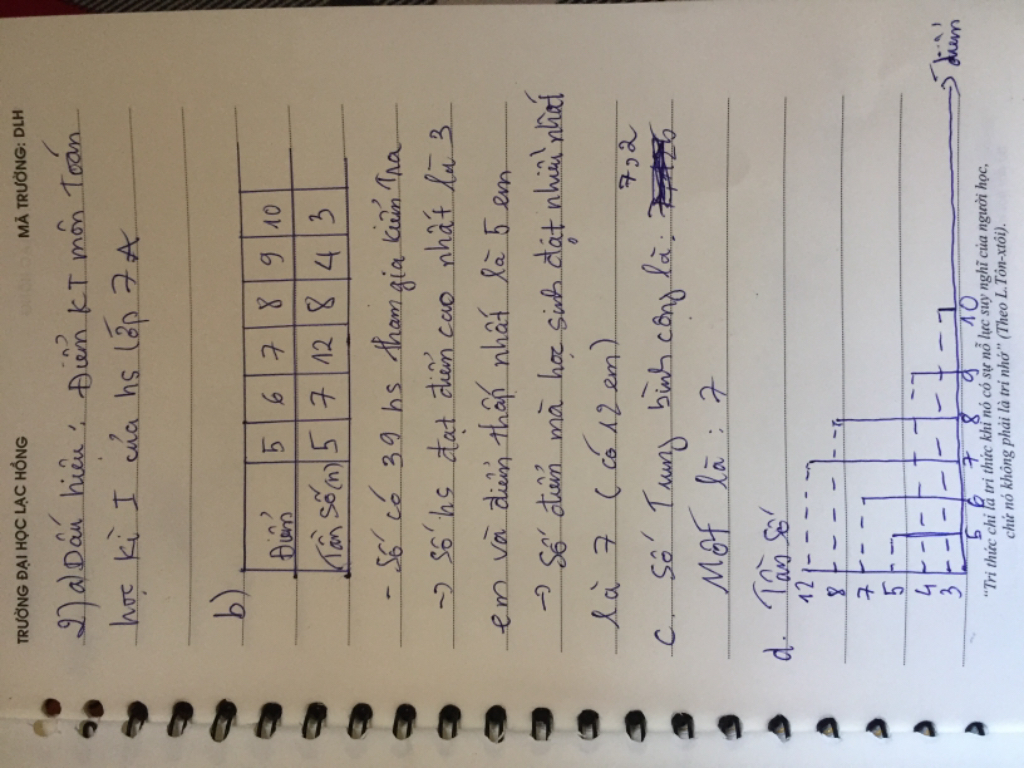 TRƯỜNG ĐẠI HỌC LẠC HỒNG MÃ TRƯỜNG: DLH
2) a) Dấu hiệu: Điểm KT môn Toán
học kì I của hs lớp 7A
b)
Điểm 5 6 7 8 9 10
Tần số (n) 5 7 12 8 4 3
- Số có 39 hs tham gia kiểm tra
→ Số hs đạt điểm cao nhất là 3
em và điểm thấp nhất là 5 em
→ Số điểm mà học sinh đạt nhiều nhất
là 7 (có 12 em)
c. Số Trung bình cộng là. 7,2
Mốt là: 7
d. Tần số
12
8
7
5
4
3
5 6 7 8 9 10 điểm
"Tri thức chỉ là tri thức khi nó có sự nỗ lực suy nghĩ của người học,
chứ nó không phải là trí nhớ" (Theo L.Tôn-xtôi).